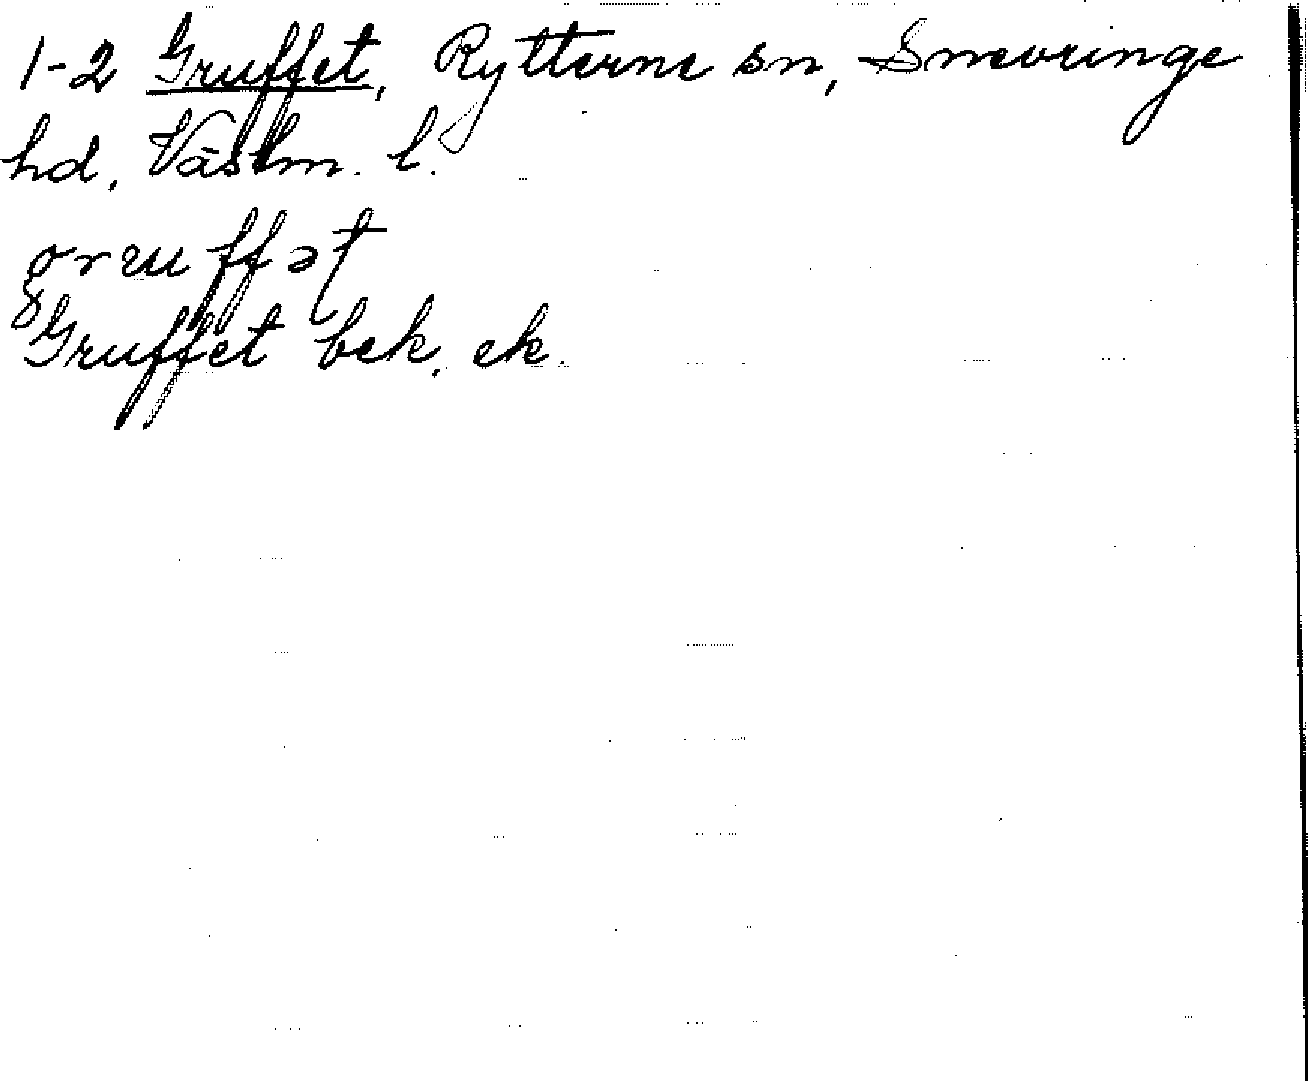 1-2 Gruffet, Rytterne sn, Snevringe
hd, Västm. l.
gruffət
Gruffet bek, ek.